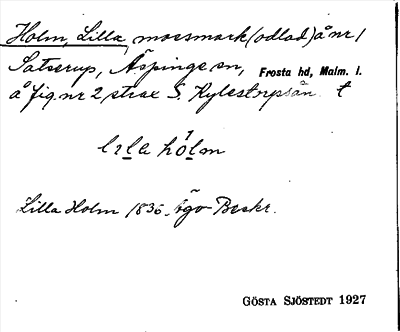 Holm, Lilla, mossmark (odlad) å nr 1
Satserup, Äspinge sn, Frosta hd, Malm. l.
å fig. nr 2, strax S. Kylestorpsån. t
lɩla hólm
Lilla Holm 1835 Ägo-Beskr.
GÖSTA SJÖSTEDT 1927